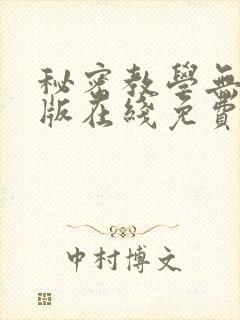 秘密教學無
版在綫免費
中村博文